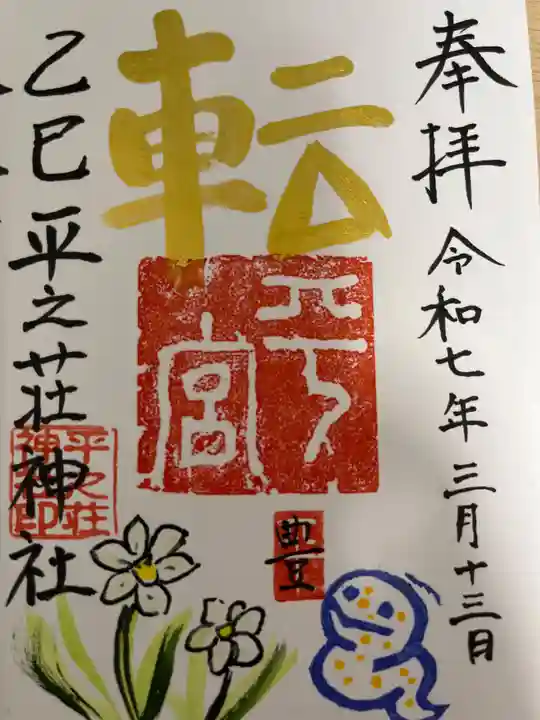 奉拝
令和七年三月十三日
転
平宮
豊
乙巳 平之荘神社
平之荘神社印